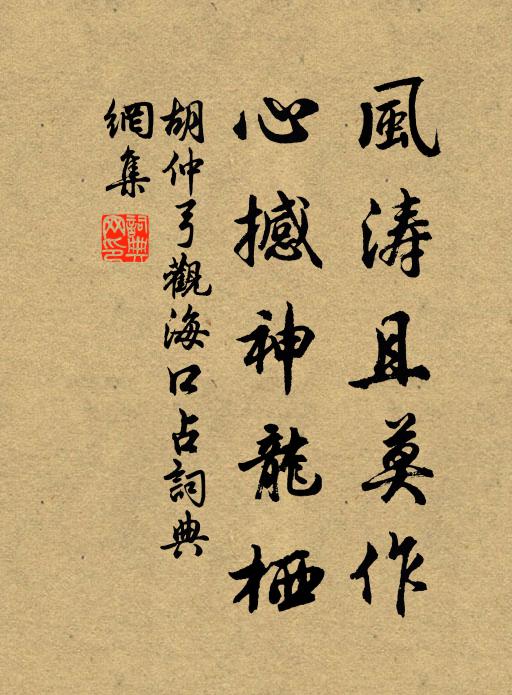 風涛且莫作
心撼神龍栖
胡仲弓觀海口占詞典
網集
詞典
网印